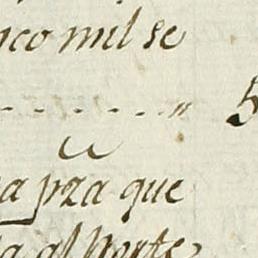 nco mil se
- - - - - - - " 5
a pza que
a al Norte